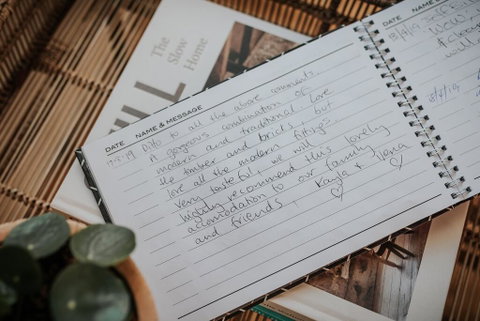 The
Slow
Home
LL
DATE NAME & MESSAGE
Ditto to all the above comments.
A gorgeous combination of
modern and traditional, love
the timber and bricks, but
love all the modern fitting's
very tasteful, we will
highly recommend this lovely
accomodation to our family
and friends, Kayla &
DATE NAME
18/4/19